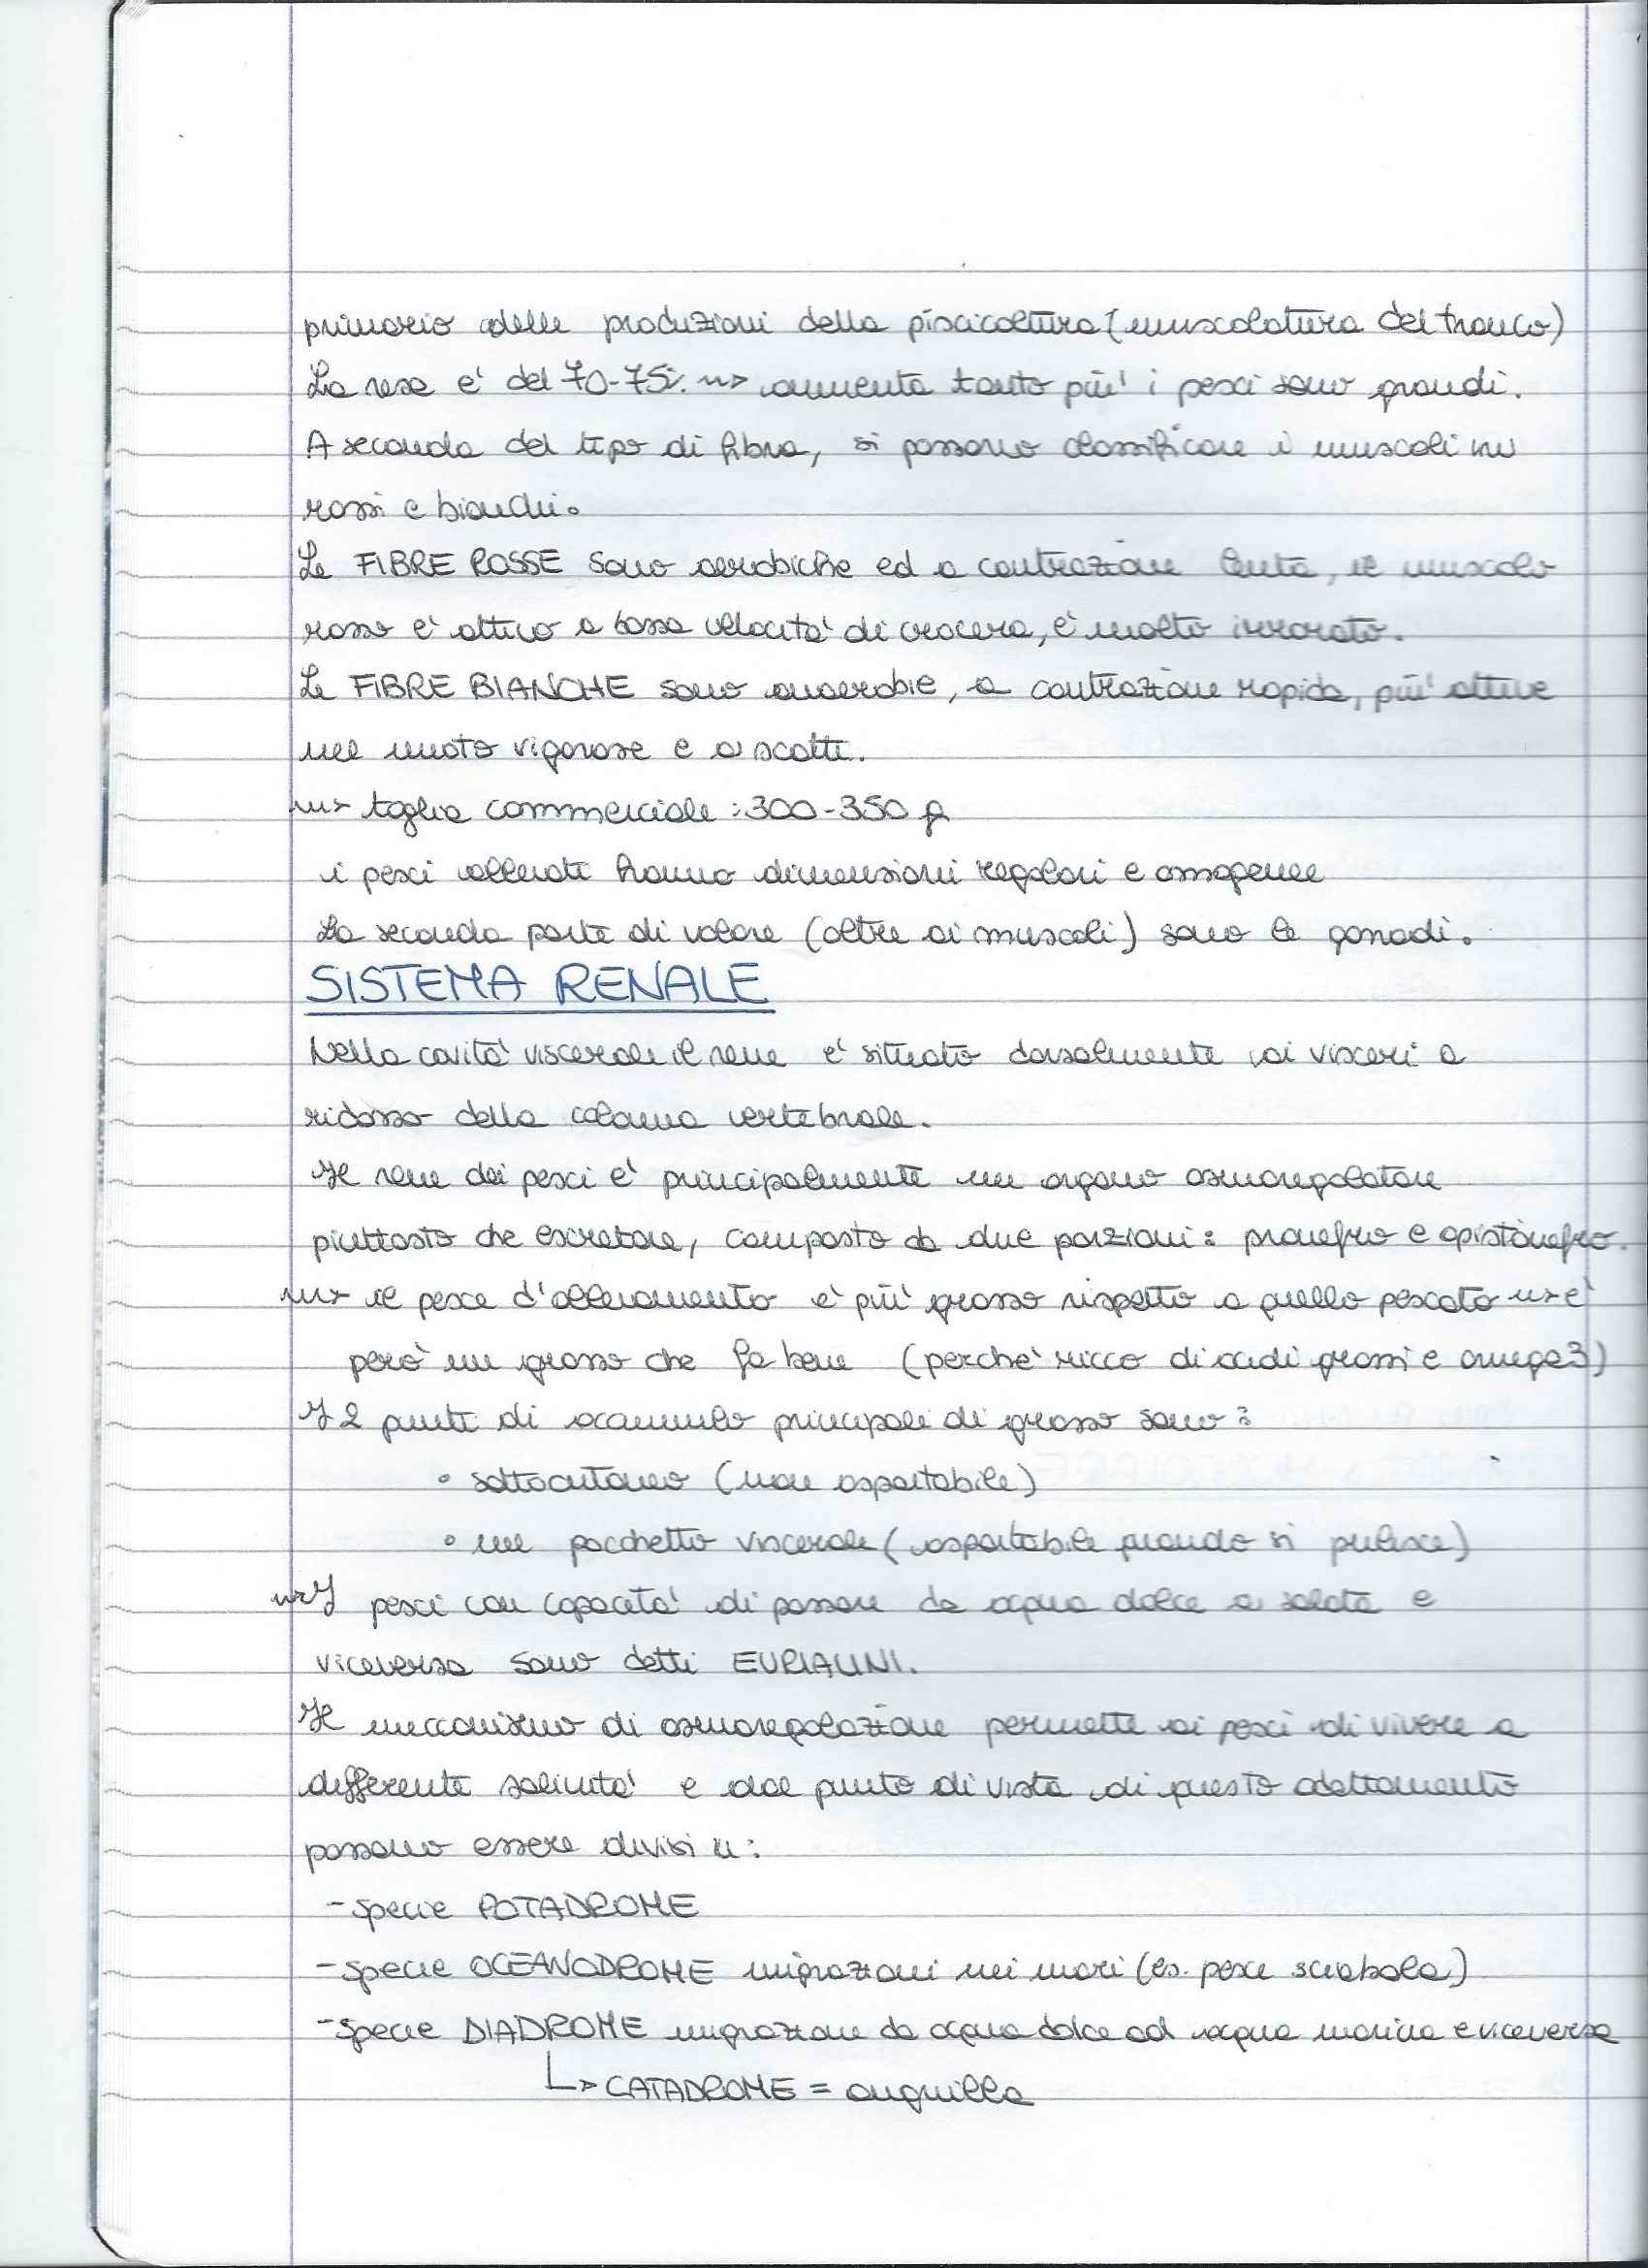 primario delle produzioni della piscicoltura (muscolatura del tronco)
La resa e' del 70-75% ~> aumenta tanto piu' i pesci sono grandi.
A seconda del tipo di fibra, si possono classificare i muscoli in
rossi e bianchi.
Le FIBRE ROSSE sono aerobiche ed a contrazione lenta, il muscolo
rosso e' attivo a bassa velocita' di crociera, e' molto irrorato.
Le FIBRE BIANCHE sono anaerobie, a contrazione rapida, piu' attive
nel nuoto vigoroso e a scatti.
~> taglia commerciale: 300-350 g
i pesci allevati hanno dimensioni regolari e omogenee
La seconda parte di valore (oltre ai muscoli) sono le gonadi.
SISTEMA RENALE
Nella cavita' viscerale il rene e' situato dorsalmente ai visceri a
ridosso della colonna vertebrale.
Il rene dei pesci e' principalmente un organo osmoregolatore
piuttosto che escretore, composto da due porzioni: pronefro e opistonefro.
~> il pesce d'allevamento e' piu' grasso rispetto a quello pescato ~> e'
pero' un grasso che fa bene (perche' ricco di acidi grassi e omega3)
I 2 punti di accumulo principali di grasso sono:
• sottocutaneo (non asportabile)
• nel pacchetto viscerale (asportabile quando si pulisce)
~> I pesci con capacita' di passare da acqua dolce a salata e
viceversa sono detti EURIALINI.
Il meccanismo di osmoregolazione permette ai pesci di vivere a
differente salinita' e dal punto di vista di questo adattamento
possono essere divisi in:
- specie POTADROME
- specie OCEANODROME migrazioni nei mari (es. pesce sciabola)
- specie DIADROME migrazione da acqua dolce ad acqua marina e viceversa
↳ CATADROME = anguilla